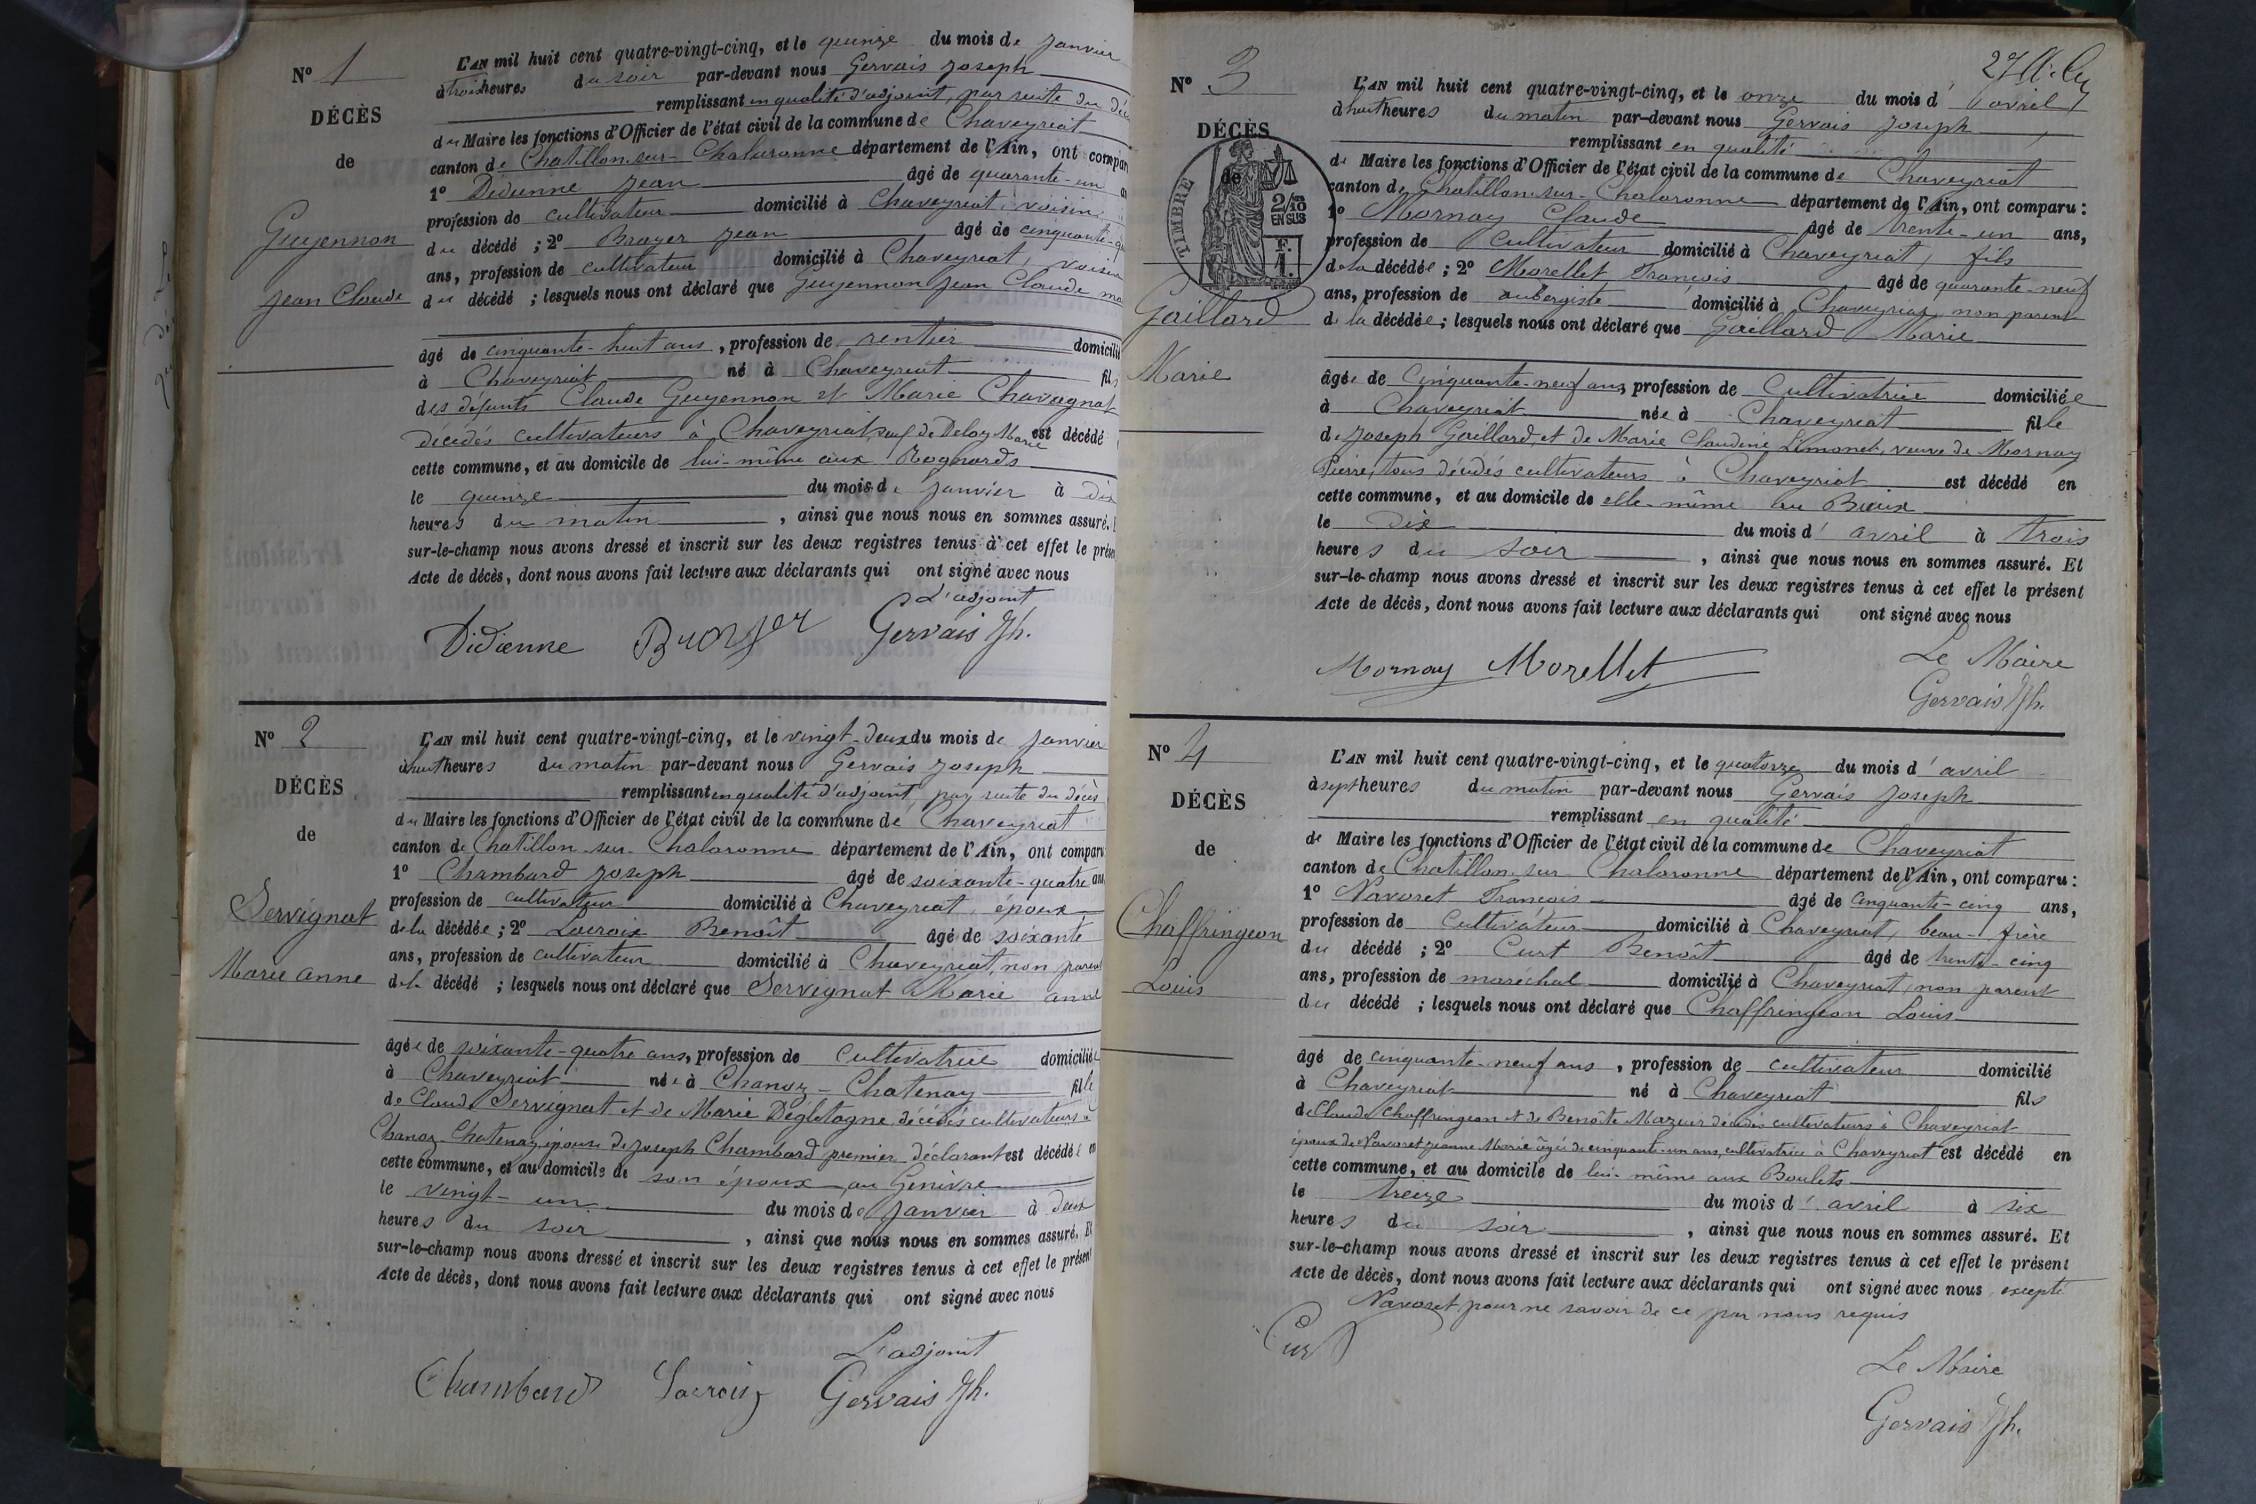 Nº 1
DÉCÈS
de
Guyennon
Jean Claude
L'AN mil huit cent quatre-vingt-cinq, et le quinze du mois de janvier
à trois heures du soir par-devant nous Gervais Joseph
remplissant en qualité d'adjoint, par suite du
du Maire les fonctions d'Officier de l'état civil de la commune de Chaveyriat
canton de Chatillon-sur-Chalaronne département de l'Ain, ont
1º Didienne Jean âgé de quarante-un
profession de cultivateur domicilié à Chaveyriat, voisin
du décédé ; 2º Broyer Jean âgé de cinquante-
ans, profession de cultivateur domicilié à Chaveyriat, voisin
du décédé ; lesquels nous ont déclaré que Guyennon Jean Claude
âgé de cinquante-huit ans, profession de rentier domicilié
à Chaveyriat né à Chaveyriat fils
des défunts Claude Guyennon et Marie Chavagnat
décédés cultivateurs à Chaveyriat, veuf de Deloy Marie est décédé
cette commune, et au domicile de lui-même aux Rognards
le quinze du mois de janvier à dix
heures du matin, ainsi que nous nous en sommes assuré.
sur-le-champ nous avons dressé et inscrit sur les deux registres tenus à cet effet le
Acte de décès, dont nous avons fait lecture aux déclarants qui ont signé avec nous
L'adjoint
Didienne Broyer Gervais Jh.
Nº 2
DÉCÈS
de
Servignat
Marie anne
L'AN mil huit cent quatre-vingt-cinq, et le vingt-deux du mois de janvier
à huit heures du matin par-devant nous Gervais Joseph
remplissant en qualité d'adjoint, par suite du décès
du Maire les fonctions d'Officier de l'état civil de la commune de Chaveyriat
canton de Chatillon-sur-Chalaronne département de l'Ain, ont
1º Chambard Joseph âgé de soixante-quatre
profession de cultivateur domicilié à Chaveyriat, époux
de la décédée ; 2º Lacroix Benoît âgé de soixante
ans, profession de cultivateur domicilié à Chaveyriat, non parent
de la décédé ; lesquels nous ont déclaré que Servignat Marie anne
âgée de soixante-quatre ans, profession de cultivatrice domiciliée
à Chaveyriat née à Chanoz-Chatenay fille
de Claude Servignat et de Marie Degletagne décédés cultivateurs à
Chanoz-Chatenay, épouse de Joseph Chambard premier déclarant est décédée en
cette commune, et au domicile de son époux au Genivre
le vingt-un du mois de janvier à deux
heures du soir, ainsi que nous nous en sommes assuré. Et
sur-le-champ nous avons dressé et inscrit sur les deux registres tenus à cet effet le présent
Acte de décès, dont nous avons fait lecture aux déclarants qui ont signé avec nous
L'adjoint
Chambard Lacroix Gervais Jh.
Nº 3
DÉCÈS
de
TIMBRE
2/10
EN SUS
F.
1.
Gaillard
Marie
L'AN mil huit cent quatre-vingt-cinq, et le onze du mois d'avril
à huit heures du matin par-devant nous Gervais Joseph
remplissant en qualité
de Maire les fonctions d'Officier de l'état civil de la commune de Chaveyriat
canton de Chatillon-sur-Chalaronne département de l'Ain, ont comparu :
1º Mornay Claude âgé de trente-un ans,
profession de cultivateur domicilié à Chaveyriat, fils
de la décédée ; 2º Morellet François âgé de quarante-neuf
ans, profession de aubergiste domicilié à Chaveyriat, non parent
de la décédée ; lesquels nous ont déclaré que Gaillard Marie
âgée de cinquante-neuf ans, profession de cultivatrice domiciliée
à Chaveyriat née à Chaveyriat fille
de Joseph Gaillard, et de Marie Claudine Limonet, veuve de Mornay
Pierre, tous décédés cultivateurs à Chaveyriat est décédé en
cette commune, et au domicile de elle-même au
le dix du mois d'avril à trois
heures du soir, ainsi que nous nous en sommes assuré. Et
sur-le-champ nous avons dressé et inscrit sur les deux registres tenus à cet effet le présent
Acte de décès, dont nous avons fait lecture aux déclarants qui ont signé avec nous
Le Maire
Mornay Morellet Gervais Jh.
Nº 4
DÉCÈS
de
Chaffringeon
Louis
L'AN mil huit cent quatre-vingt-cinq, et le quatorze du mois d'avril
à sept heures du matin par-devant nous Gervais Joseph
remplissant en qualité
de Maire les fonctions d'Officier de l'état civil de la commune de Chaveyriat
canton de Chatillon-sur-Chalaronne département de l'Ain, ont comparu :
1º Navoret François âgé de cinquante-cinq ans,
profession de cultivateur domicilié à Chaveyriat, beau-frère
du décédé ; 2º Curt Benoît âgé de trente-cinq
ans, profession de maréchal domicilié à Chaveyriat, non parent
du décédé ; lesquels nous ont déclaré que Chaffringeon Louis
âgé de cinquante-neuf ans, profession de cultivateur domicilié
à Chaveyriat né à Chaveyriat fils
de Claude Chaffringeon et de Benoîte Mazuir décédés cultivateurs à Chaveyriat
époux de Navoret Jeanne Marie âgée de cinquante-un ans, cultivatrice à Chaveyriat est décédé en
cette commune, et au domicile de lui-même aux Boulets
le treize du mois d'avril à six
heures du soir, ainsi que nous nous en sommes assuré. Et
sur-le-champ nous avons dressé et inscrit sur les deux registres tenus à cet effet le présent
Acte de décès, dont nous avons fait lecture aux déclarants qui ont signé avec nous, excepté
Navoret pour ne savoir de ce par nous requis
Curt
Le Maire
Gervais Jh.